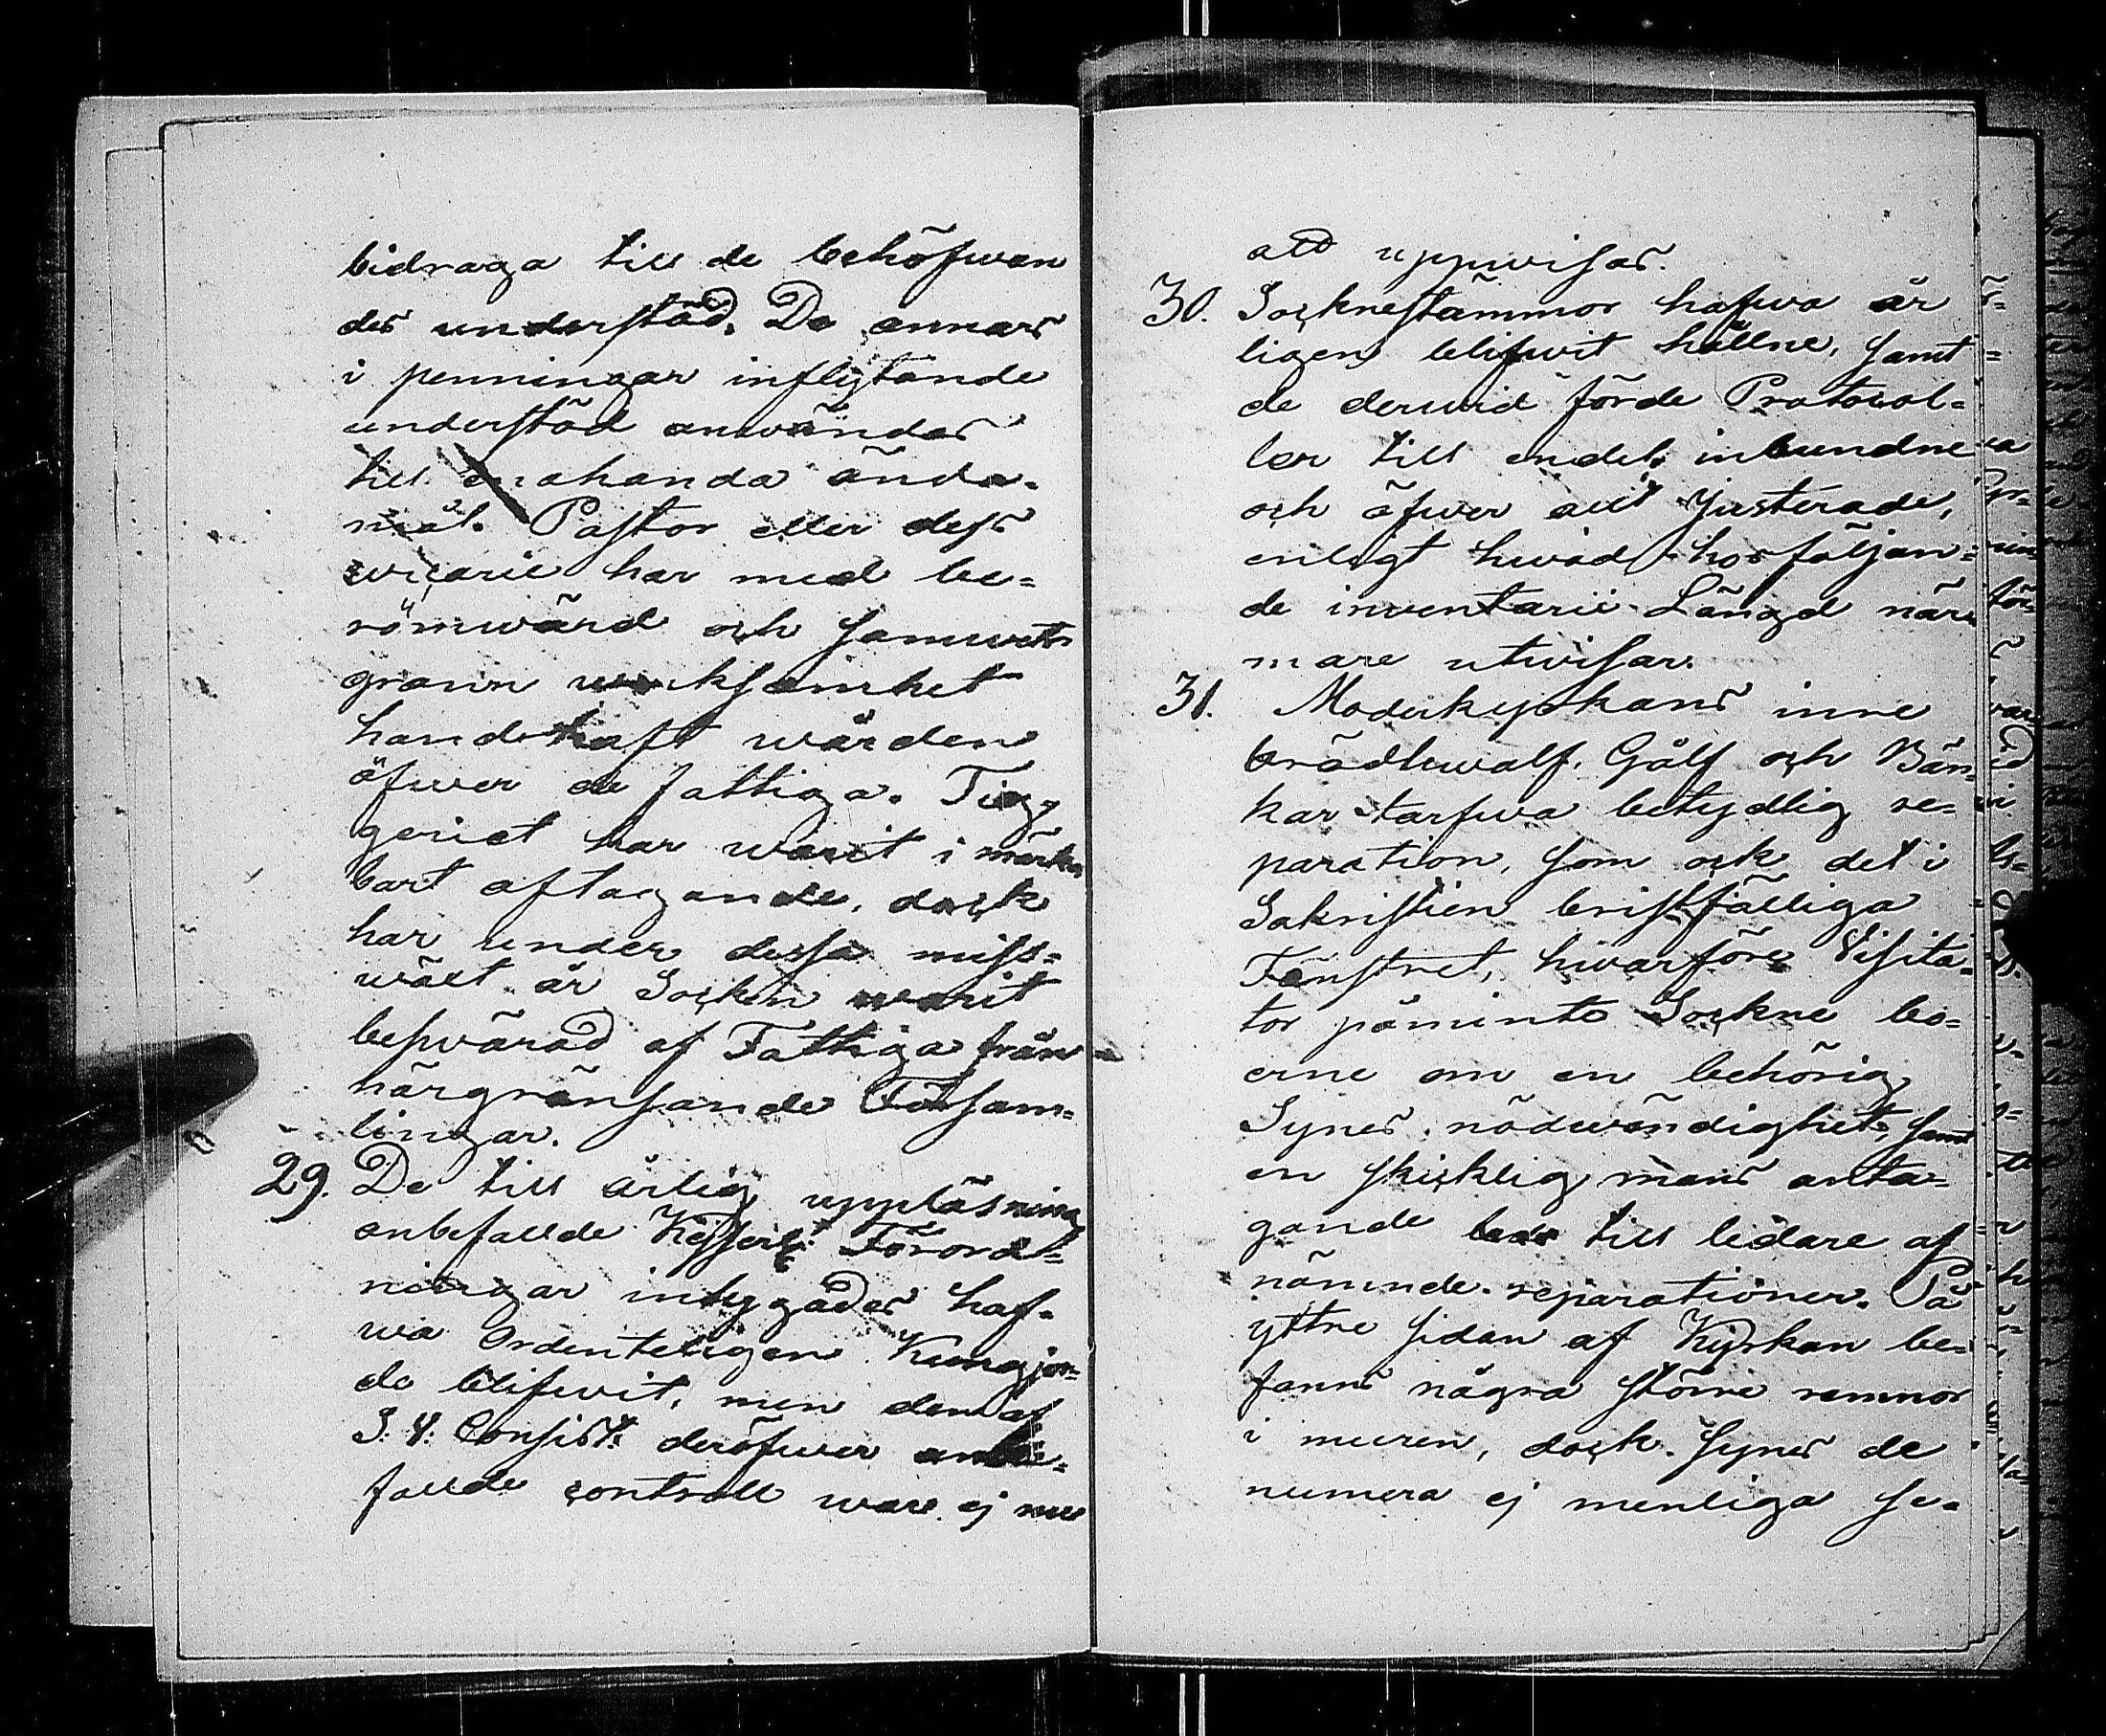 bidraga till de behöfwan
des understöd. De annars
i penningar inflytande
understöd användas
till enahanda ända-
mål. Pastor eller dess
vicarie har med be=
römwärd och samwets
grann werksamhet
handhaft wården
öfwer de fattiga. Tig,
geriet har warit i märk
bart aftagande, dock
har under dessa miss=
wäxt år Socken warit
beswärad af Fattiga från
närgränsande Försam=
lingar.
29. De till årlig uppläsning
anbefallde Kejserl: Förord=
ningar inbyggades haf-
wa Ordenteligen Kungjor=
de blifwit, men den af
Consist: deröfwer anbe=
fallde controll ware ej nu
att uppwisas.
30. Socknestämmor hafwa år
ligen blifwit hållne, samt
de derwid förde Protocol=
ler till endel inbundne
och öfwer allt Justerade,
enligt hwad hosföljan=
de inventarii Längd när
mare utwisar.
31. Moderkyrkans inre
brädhwalf. Gålf och Bän
kar tarfwa betydlig re=
paration, som ock det i
Sakristien bristfälliga
Fönstret, hwarföre Visita=
tor påminte Sockne bo=
erne om en behörig
Synes nödwändighet, samt
en skicklig mans anta=
gande till ledare af
nämnde reparationer. På
yttre sidan af Kyrkan be=
fanns några större remnor
i muren, dock synes de
numera ej menliga se=